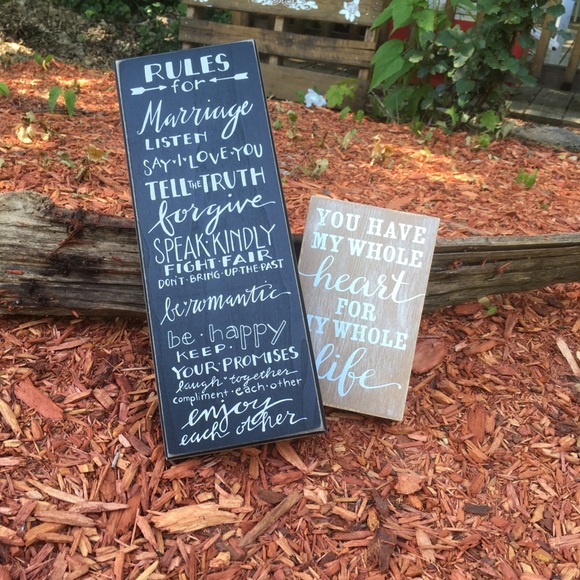 RULES
for
Marriage
LISTEN
SAY·I·LOVE·YOU
TELL THE TRUTH
forgive
SPEAK·KINDLY
FIGHT·FAIR
DON'T·BRING·UP·THE·PAST
be·romantic
be·happy
KEEP·
YOUR·PROMISES
laugh·together
compliment·each·other
enjoy
each other
YOU HAVE
MY WHOLE
heart
FOR
MY WHOLE
life